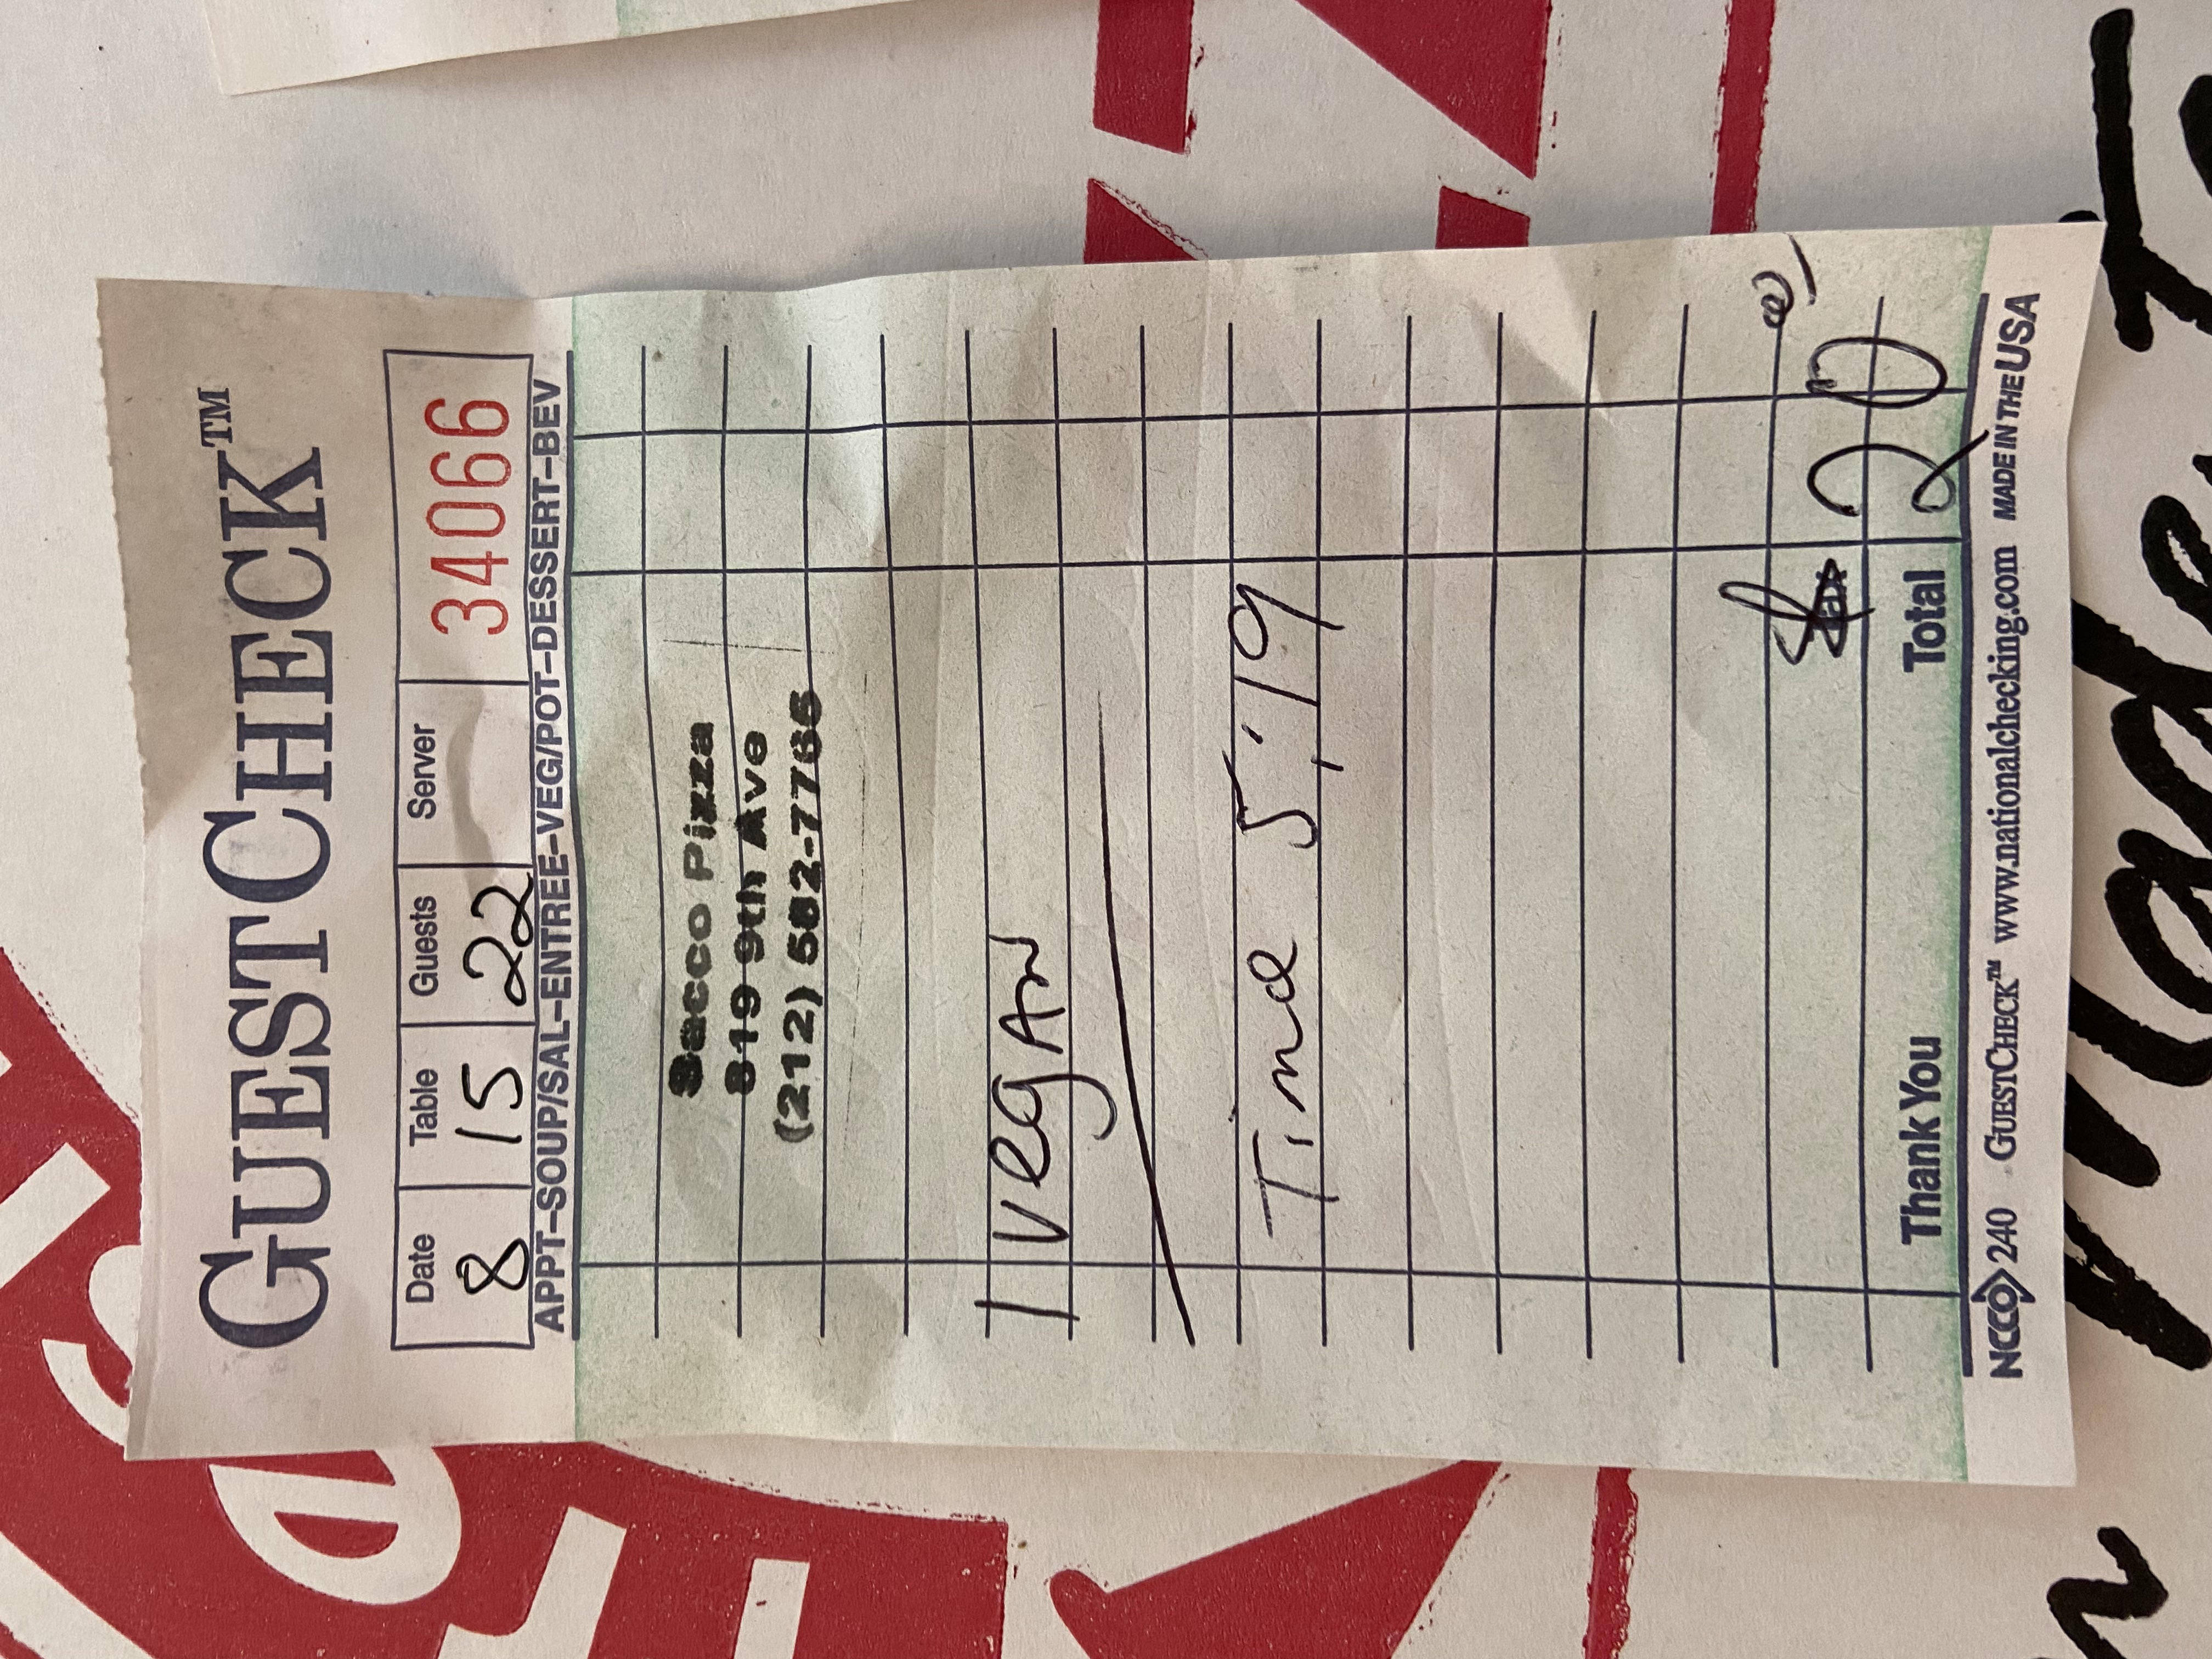 GUESTCHECK™
Date Table Guests Server
8 15 22 34066
APPT–SOUP/SAL–ENTREE–VEG/POT–DESSERT–BEV
Sacco Pizza
819 9th Ave
(212) 582-7765
1 vegan
Time 5:19
Tax
$ 20 00
Thank You Total
NCCO 240 GUESTCHECK™ www.nationalchecking.com MADE IN THE USA
Made To